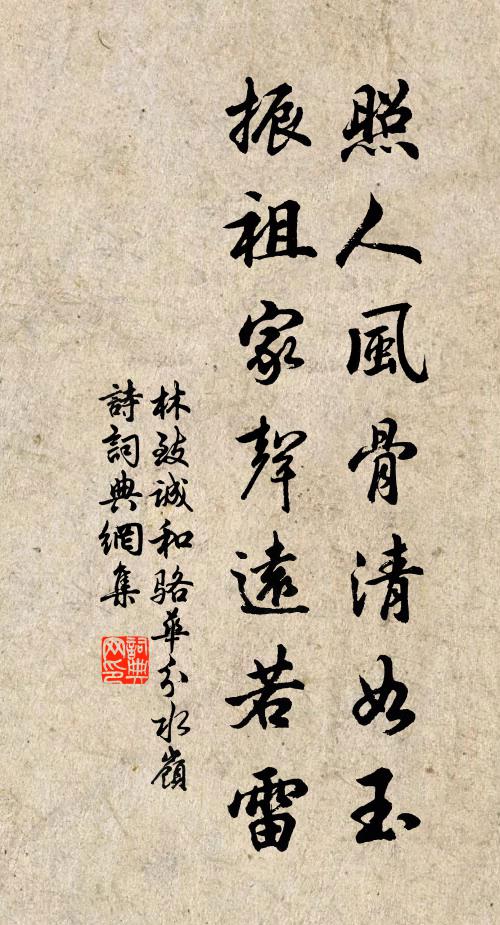 照人風骨清如玉
振祖家聲遠若雷
林致誠和駱華分水嶺
詩詞典網集
詞典網印